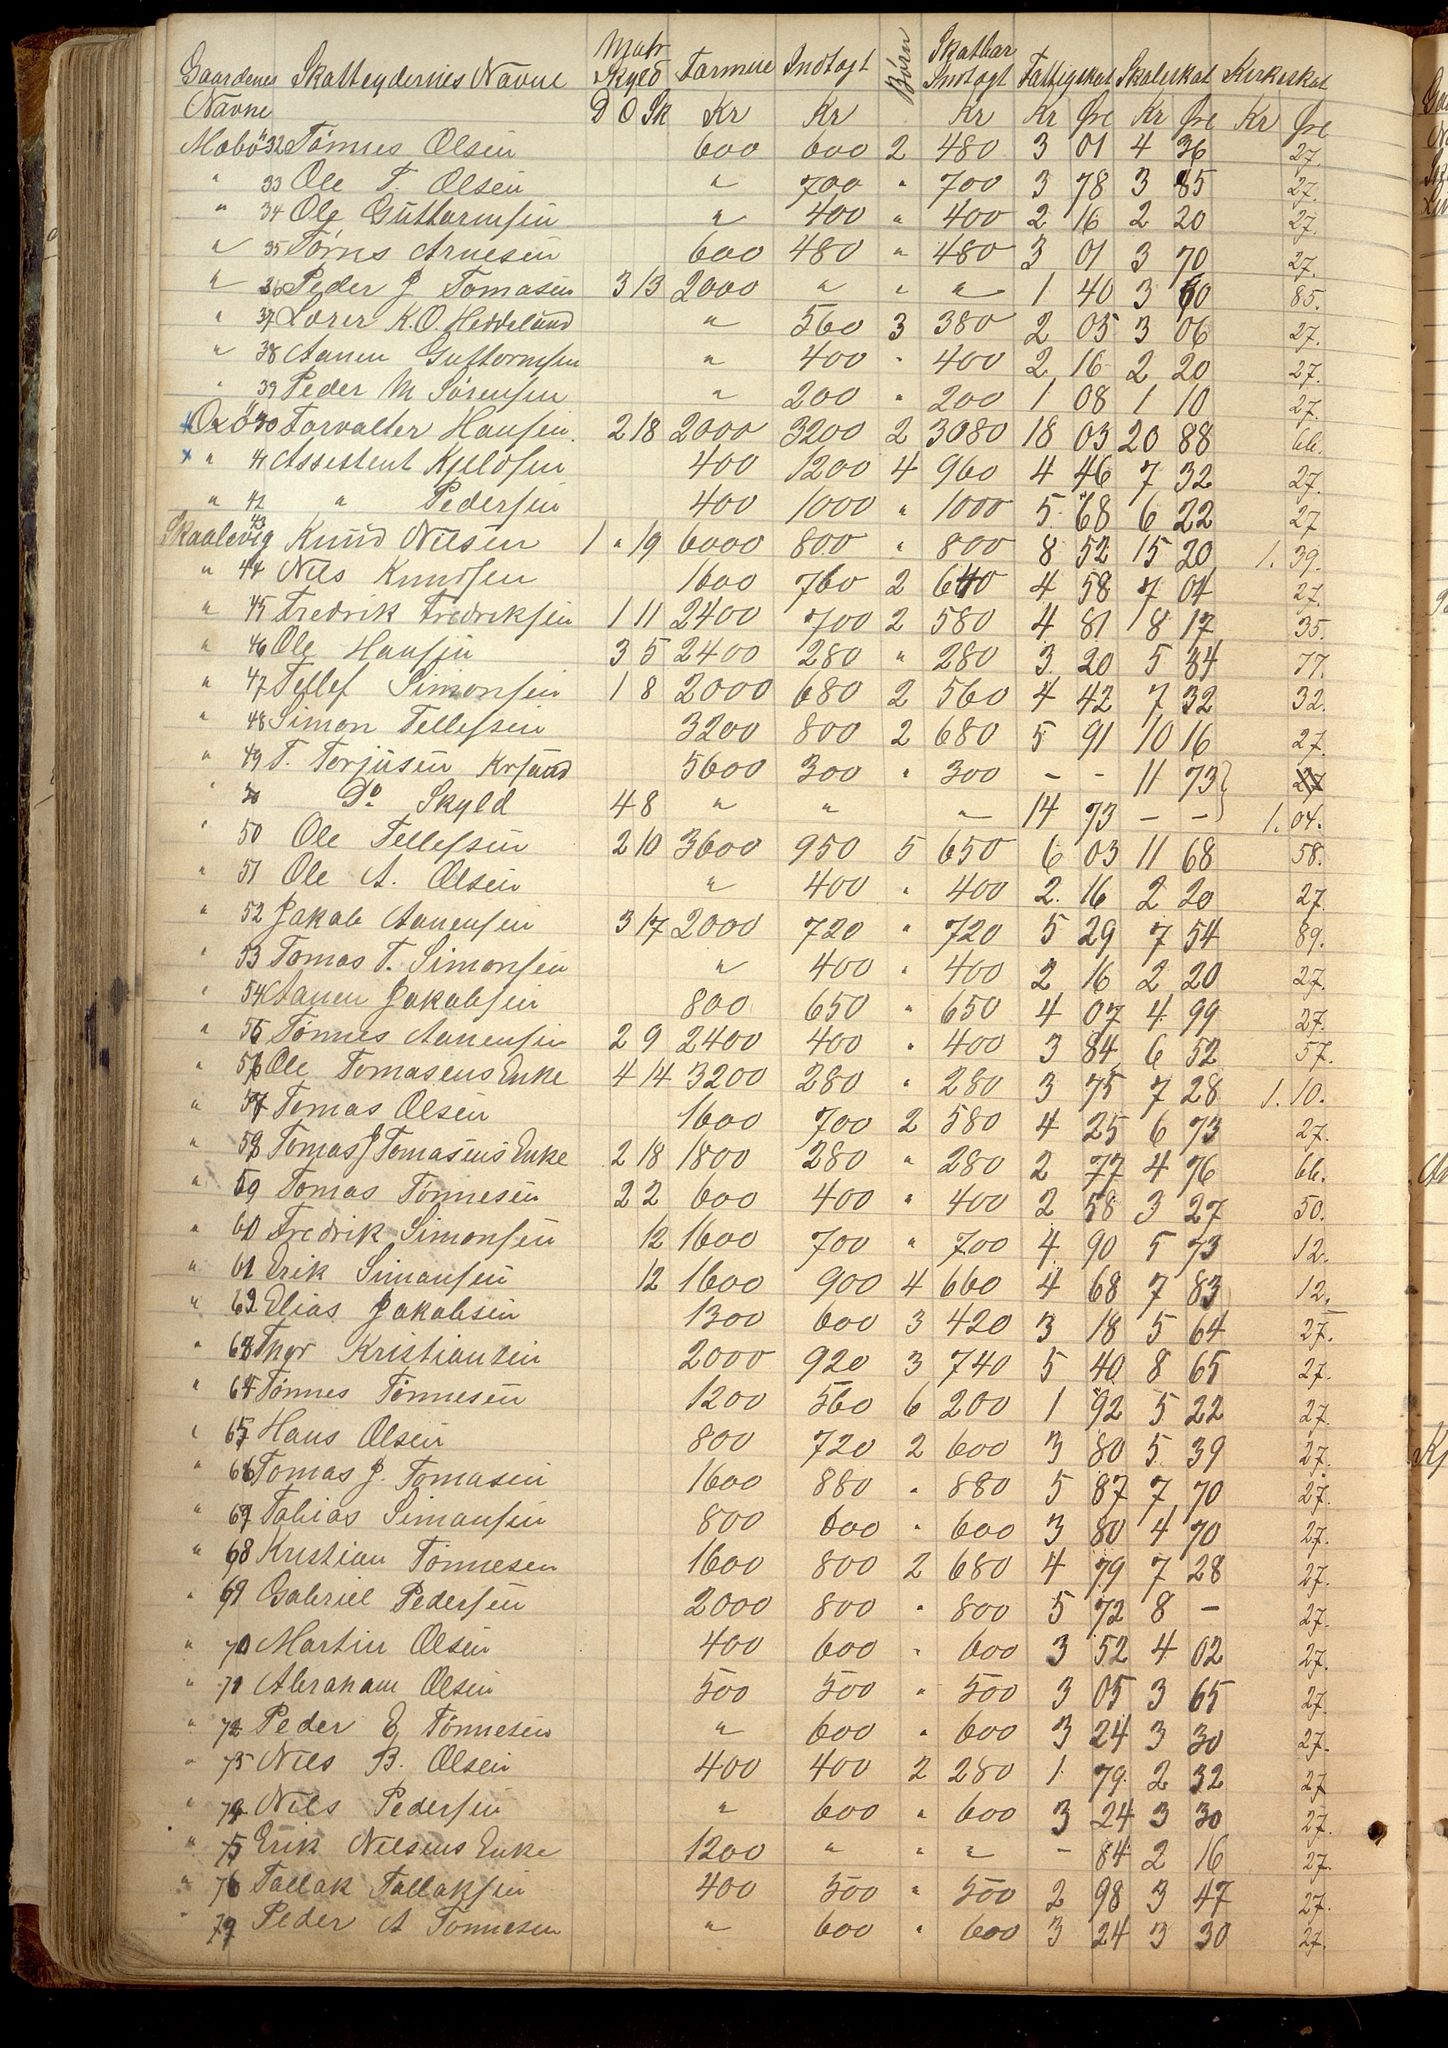 Gaardenes Skatteydernes Navne Matr Skyld Formue Indtægt Børn Skatbar Indtægt Fattigskat Skoleskat Kirkeskat
Navne D O Sk Kr Kr Kr Kr Øre Kr Øre Kr Øre
Mobö 32 Tønnes Olsen 600 600 2 480 3 01 4 36 27.
" 33 Ole T. Olsen " 700 " 700 3 78 3 85 27.
" 34 Ole Guttormsen " 400 " 400 2 16 2 20 27.
" 35 Tørris Arnesen 600 480 " 480 3 01 3 70 27.
" 36 Peder J Tomasen 3 13 2000 " " " 1 40 3 60 85.
" 37 Lærer K.O. Heddeland " 560 3 380 2 05 3 06 27.
" 38 Aanen Guttormsen " 400 " 400 2 16 2 20 27.
" 39 Peder M Sørensen " 200 " 200 1 08 1 10 27.
+ Oxö 40 Forvalter Hansen 2 18 2000 3200 2 3080 18 03 20 88 66.
x " 41 Assistent Kjeldsen 400 1200 4 960 4 46 7 32 27.
" 42 " Pedersen 400 1000 " 1000 5 68 6 22 27
Skaalevig 43 Knud Nilsen 1 " 19 6000 800 " 800 8 52 15 20 1. 39.
" 44 Nils Knudsen 1600 760 2 640 4 58 7 04 27.
" 45 Fredrik Fredriksen 1 11 2400 700 2 580 4 81 8 17 35.
" 46 Ole Hansen 3 5 2400 280 " 280 3 20 5 84 77.
" 47 Tellef Simonsen 1 8 2000 680 2 560 4 42 7 32 32.
" 48 Simon Tellefsen 3200 800 2 680 5 91 10 16 27.
" 49 T. Torjusen Krsand 5600 300 " 300 - - 11 73 27
" Do Skyld 4 8 " " " 14 73 - - 1. 04.
" 50 Ole Tellefsen 2 10 3600 950 5 650 6 03 11 68 58.
" 51 Ole A. Olsen " 400 " 400 2 16 2 20 27.
" 52 Jakob Aanensen 3 17 2000 720 " 720 5 29 7 54 89.
" 53 Tomas T. Simonsen " 400 " 400 2 16 2 20 27.
" 54 Aanen Jakobsen 800 650 " 650 4 07 4 99 27.
" 55 Tønnes Aanensen 2 9 2400 400 " 400 3 84 6 52 57.
" 56 Ole Tomasens Enke 4 14 3200 280 " 280 3 75 7 28 1. 10.
" 57 Tomas Olsen 1600 700 2 580 4 25 6 73 27.
" 58 Tomas J Tomasens Enke 2 18 1800 280 " 280 2 77 4 76 66.
" 59 Tomas Tønnesen 2 2 600 400 " 400 2 58 3 27 50.
" 60 Fredrik Simonsen 12 1600 700 " 700 4 90 5 73 12.
" 61 Erik Simonsen 12 1600 900 4 660 4 68 7 83 12.
" 62 Elias Jakobsen 1300 600 3 420 3 18 5 64 27.
" 63 Thor Kristiansen 2000 920 3 740 5 40 8 65 27.
" 64 Tønnes Tønnesen 1200 560 6 200 1 92 5 22 27.
" 65 Hans Olsen 800 720 2 600 3 80 5 39 27.
" 66 Tomas J. Tomasen 1600 880 " 880 5 87 7 70 27.
" 67 Tobias Simonsen 800 600 " 600 3 80 4 70 27.
" 68 Kristian Tønnesen 1600 800 2 680 4 79 7 28 27.
" 69 Gabriel Pedersen 2000 800 " 800 5 72 8 - 27.
" 70 Martin Olsen 400 600 " 600 3 52 4 02 27.
" 71 Abraham Olsen 500 500 " 500 3 05 3 65 27.
" 72 Peder E Tønnesen " 600 " 600 3 24 3 30 27.
" 73 Nils B. Olsen 400 400 2 280 1 79 2 32 27
" 74 Nils Pedersen " 600 " 600 3 24 3 30 27.
" 75 Erik Nilsens Enke 1200 " " " - 84 2 16 27.
" 76 Tallak Tallaksen 400 500 " 500 2 98 3 47 27.
" 77 Peder A Tønnesen " 600 " 600 3 24 3 30 27.